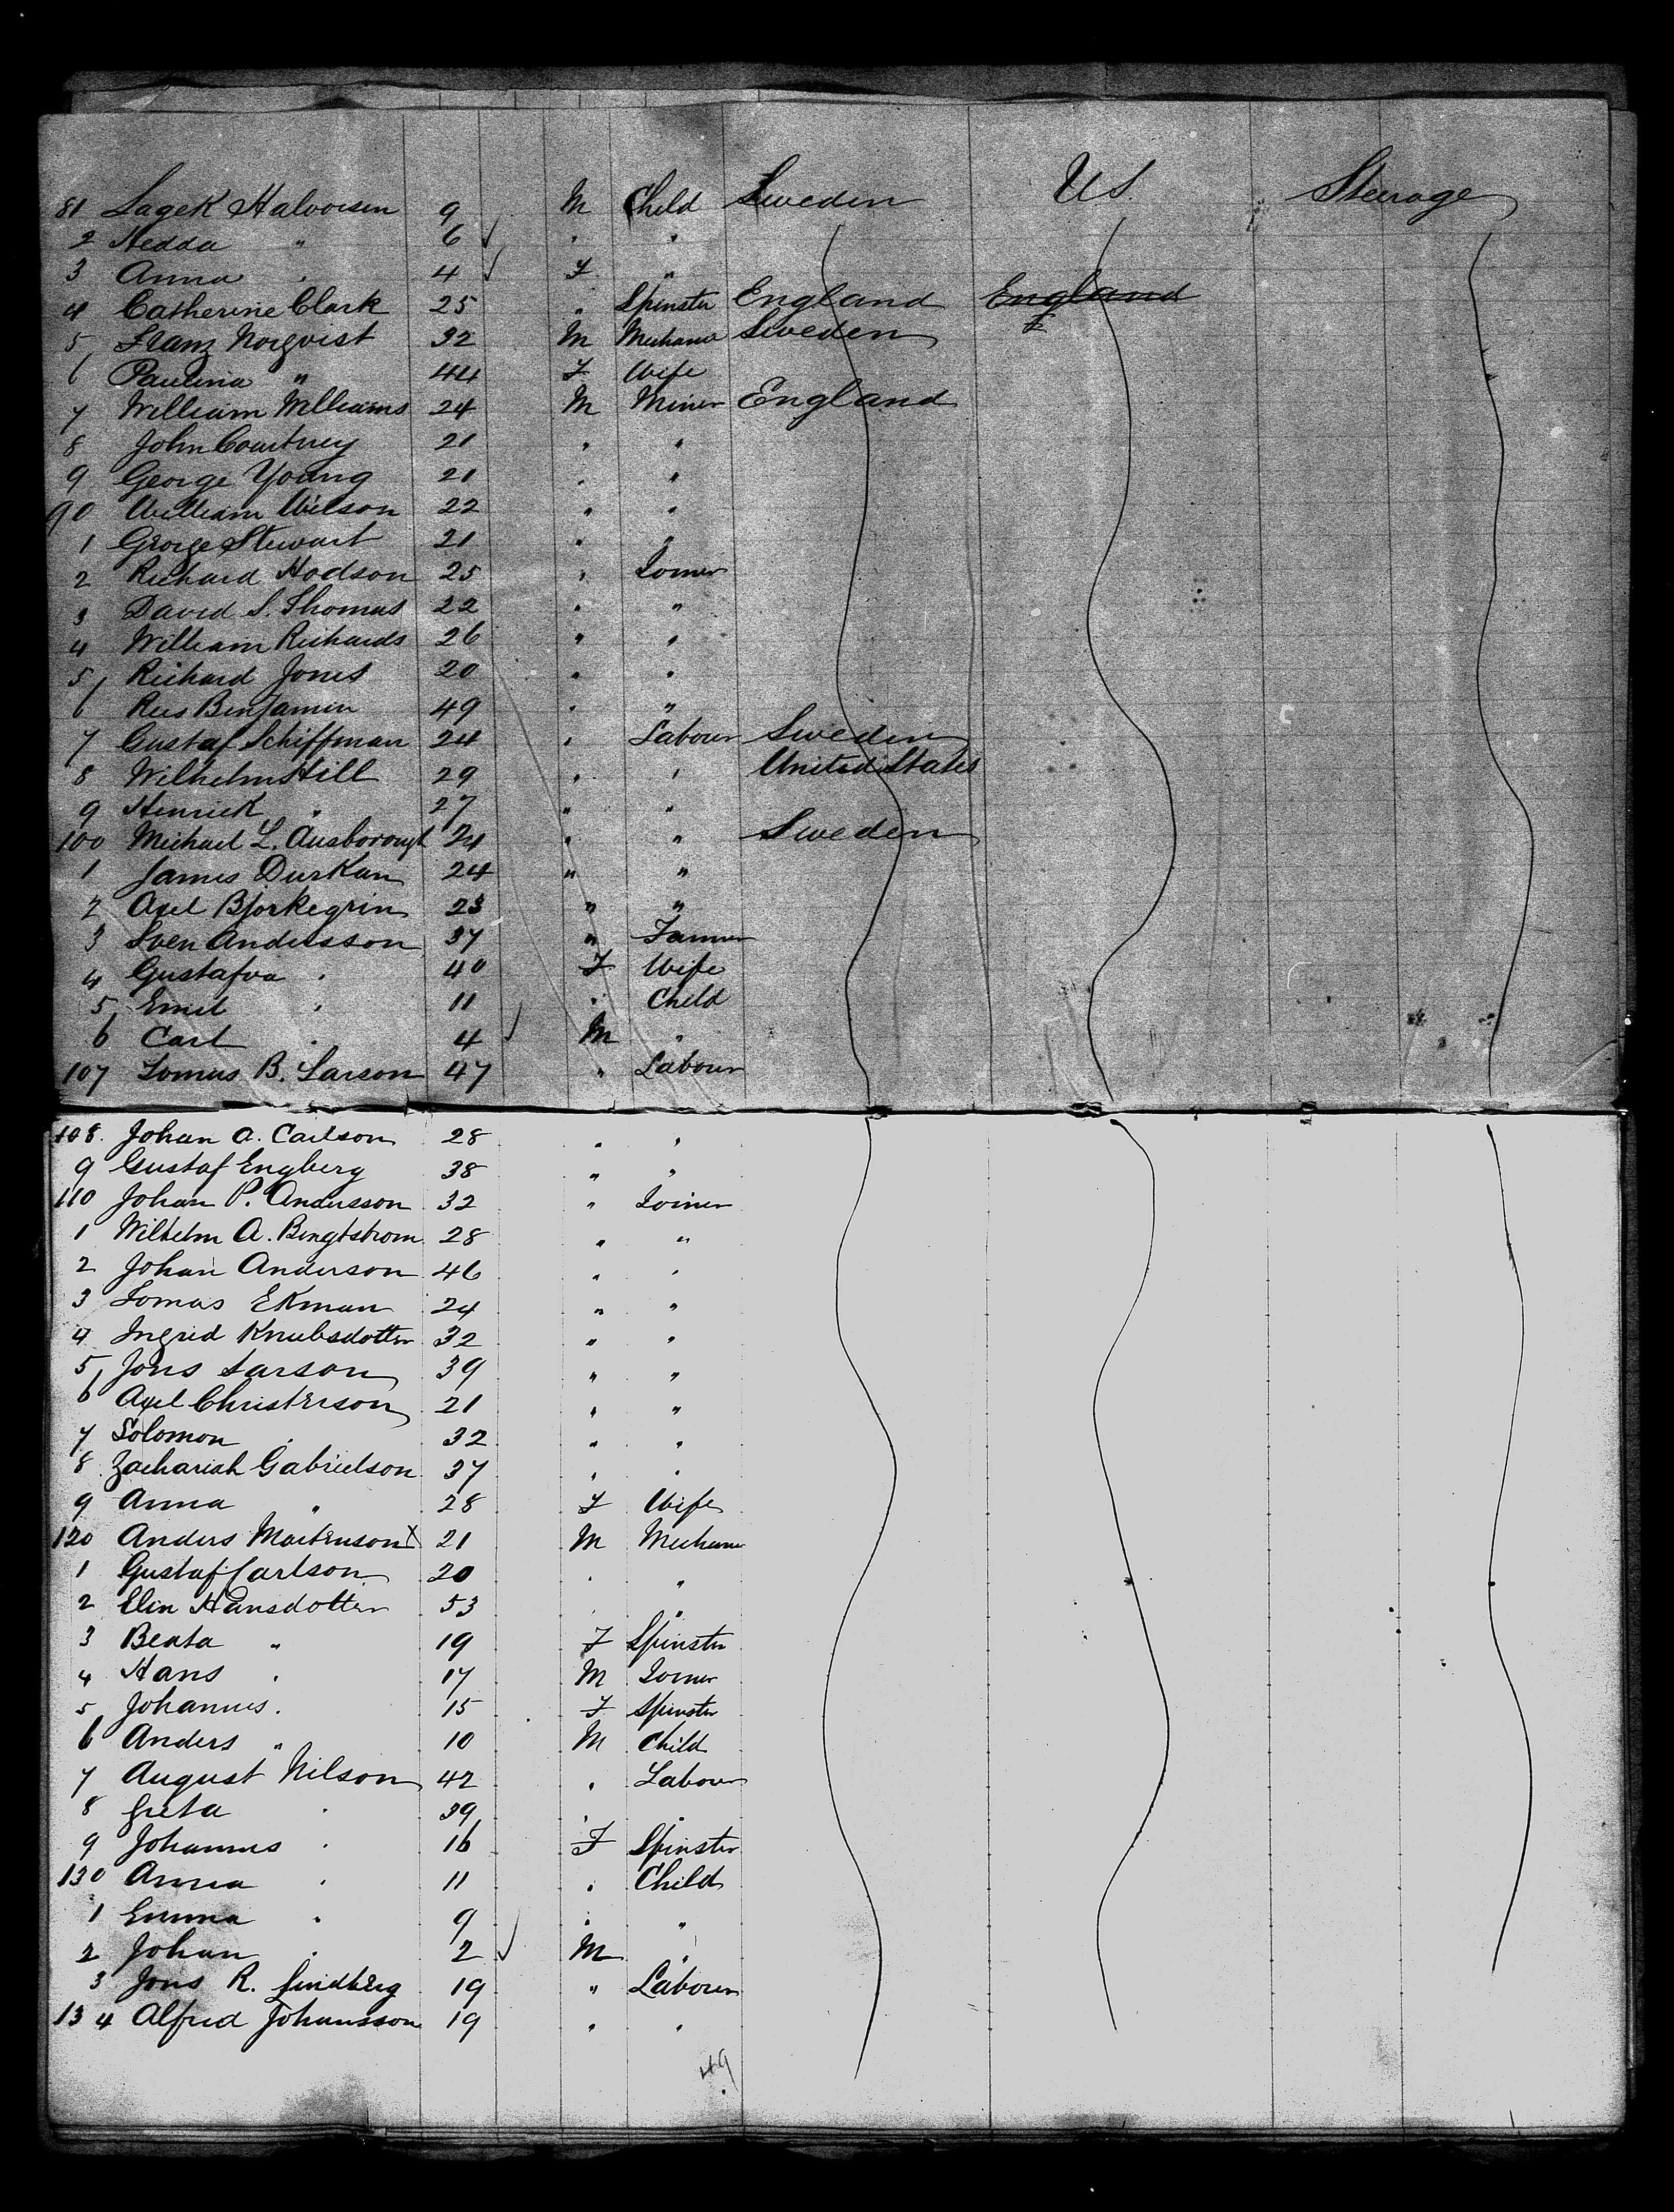 81 Lagek Halvorsen 9 M Child Sweden US. Steerage
2 Hedda " 6 " "
3 Anna " 4 F "
4 Catherine Clark 25 " Spinster England England
5 Franz Norqvist 32 M Mechanic Sweden
6 Paulina " 44 F Wife
7 William Williams 24 M Miner England
8 John Courtney 21 " "
9 George Young 21 " "
90 William Wilson 22 " "
1 George Stewart 21 " "
2 Richard Hodson 25 " Joiner
3 David S. Thomas 22 " "
4 William Richards 26 " "
5 Richard Jones 20 " "
6 Rees Benjamin 49 " "
7 Gustaf Schiffman 24 " Labour Sweden
8 Wilhelm Hill 29 " " United States
9 Henrick " 27 " "
100 Michael L. Ausborough 24 " " Sweden
1 James Durkan 24 " "
2 Axel Bjorkegrin 23 " "
3 Sven Andersson 37 " Farmer
4 Gustafva " 40 F Wife
5 Emil " 11 " Child
6 Carl " 4 M "
107 Tomas B. Larson 47 " Labour
108. Johan A. Carlson 28 " "
9 Gustaf Engberg 38 " "
110 Johan P. Andersson 32 " Joiner
1 Wilhelm A. Bengtstrom 28 " "
2 Johan Anderson 46 " "
3 Tomas Ekman 24 " "
4 Ingrid Knubsdotter 32 " "
5 Jons Larson 39 " "
6 Axel Christerson 21 " "
7 Solomon " 32 " "
8 Zachariah Gabrielson 37 " "
9 Anna " 28 F Wife
120 Anders Martenson X 21 M Mechanic
1 Gustaf Carlson 20 " "
2 Elin Hansdotter 53 " "
3 Beata " 19 F Spinster
4 Hans " 17 M Joiner
5 Johannes " 15 F Spinster
6 Anders " 10 M Child
7 August Nilson 42 " Labour
8 Greta " 39 " "
9 Johannes " 16 F Spinster
130 Anna " 11 " Child
1 Emma " 9 " "
2 Johan " 2 M "
3 Jons R. Lindberg 19 " Labour
134 Alfred Johansson 19 " "
49